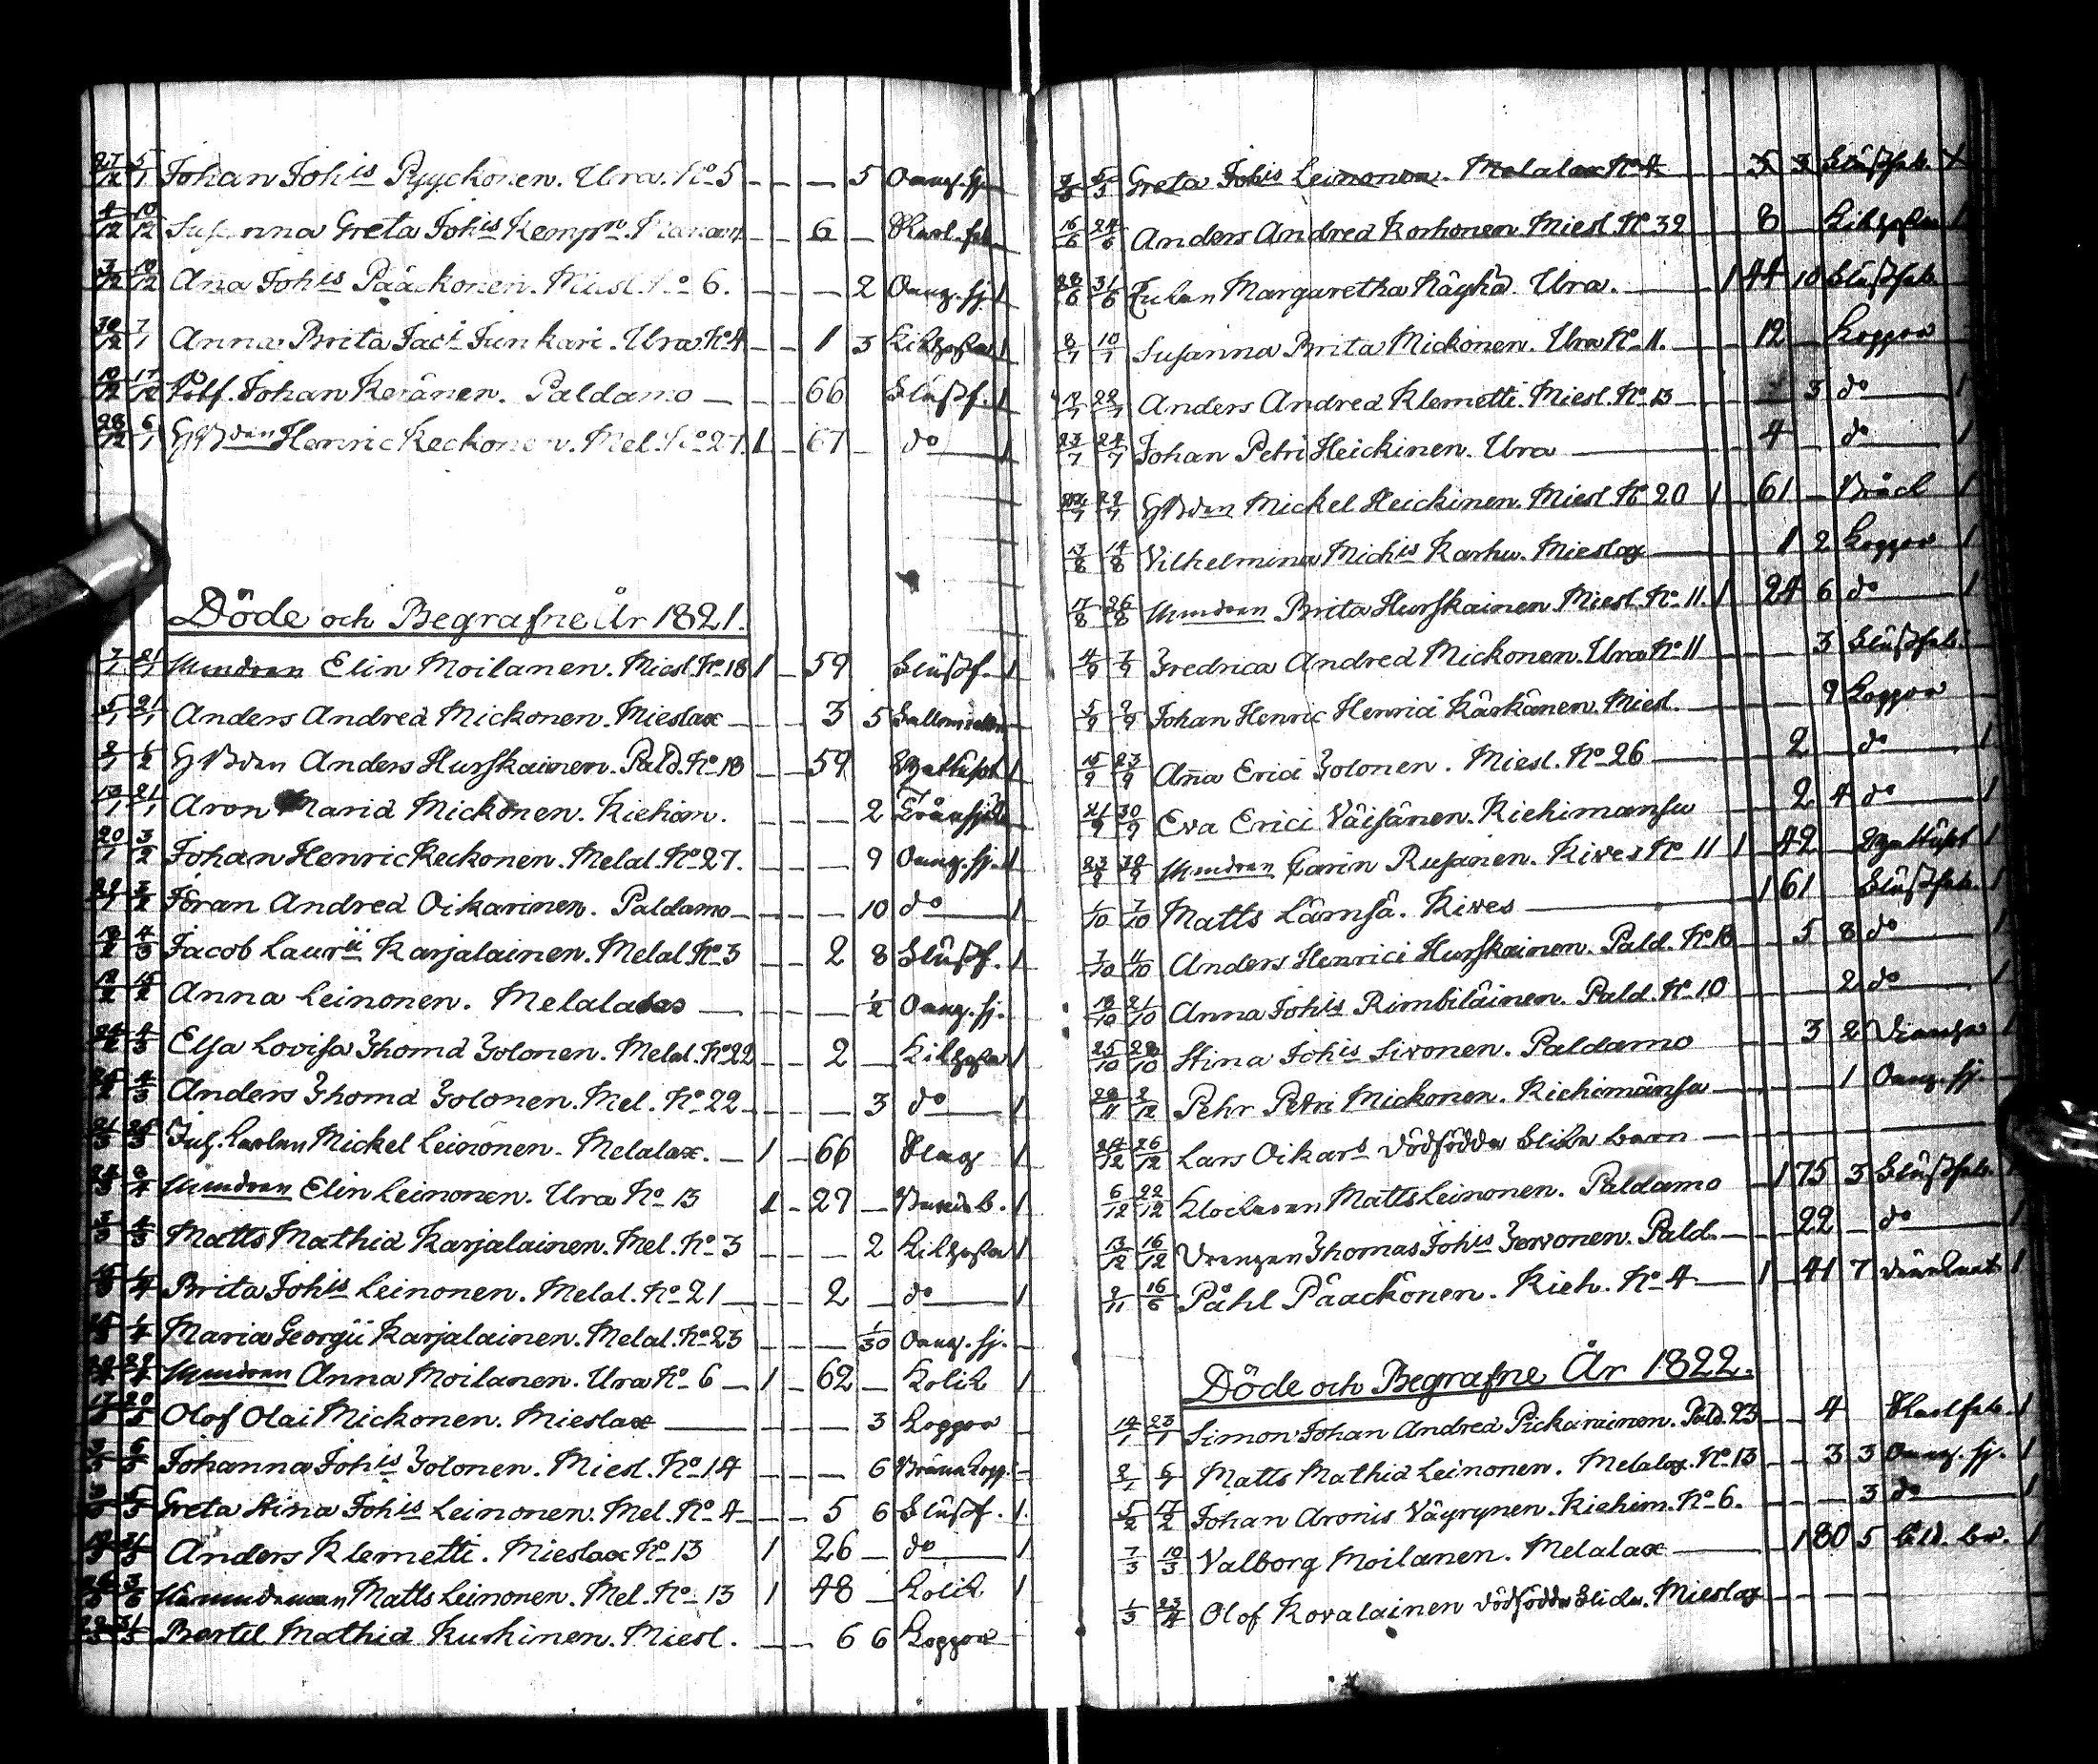 27/12 5/1 Johan Johis Pyyckönen. Ura. No 5 - - - 5 Oang. sj.
4/12 10/12 Susanna Greta Johis Kemp - - 6 -
3/12 10/12 Ana Johis Pääckönen. Miesl. No 6. - - - 2 Oang. sj. 1
30/12 7/1 Anna Brita Jac: Junkari. Ura No 4 - - 1 3 Kikhosta 1
10/12 17/12 Johan Keränen. Paldamo - - - 66 Slüßf. 1
28/12 6/1 Henric Keckonen. Mel. No 27. 1 - 67 - do 1
Döde och Begrafne År 1821.
7/1 21/1 Elin Moilanen. Miesl. No 18 1 - 59 Slüßf. 1
5/1 21/1 Anders Andreæ Mickonen. Mieslax - - 3 5
2/1 1/2 Anders Hurskainen. Pald. No 18 - - 59 1
13/1 21/1 Aron Mariæ Mickonen. Riehim. - - - 2
20/1 3/2 Johan Henric Keckonen. Melal. No 27. - - - 9 Oang. sj. 1
Jöran Andreæ Oikarinen. Paldamo - - - 10 do 1
Jacob Laurii Karjalainen. Melal. No 3 - - 2 8 Slüßf. 1
Anna Leinonen. Melalax - - - 1/2 Oang. sj.
24/2 4/3 Elsa Lovisa Thomæ Tolonen. Melal. No 22 - - 2 - Kikhosta 1
4/3 Anders Thomæ Tolonen. Mel. No 22 - - - 3 do 1
21/3 25/3 Mickel Leinonen. Melalax. - 1 - 66 1
Elin Leinonen. Ura No 13 1 - 27 - 1
Matts Mathiæ Karjalainen. Mel. No 3 - - - 2 Kikhosta 1
15/3 1/4 Brita Johis Leinonen. Melal. No 21 - - 2 - do 1
15/3 1/4 Maria Georgii Karjalainen. Melal. No 23 - - - 1/30 Oang. sj. -
Anna Moilanen. Ura No 6 - 1 - 62 - Kolik 1
17/5 20/5 Olof Olai Mickonen. Mieslax - - - 3 Koppor -
Johanna Johis Tolonen. Miesl. No 14 - - - 6
Greta Stina Johis Leinonen. Mel. No 4 - - 5 6 Slüßf. 1.
Anders Klemetti. Mieslax No 13 1 26 - do 1
Matts Leinonen. Mel. No 13 1 48 - Kolik 1
Bertil Mathiæ Kushinen. Miesl. - - 6 6 Koppor
Greta Johis Leinonen. Melalax No 4 5 3 Slüßfeb.
16/6 24/6 Anders Andreæ Korhonen. Miesl. No 39 8 Kikhosta 1
28/6 31/6 Margaretha Räyhä. Ura. 1 44 10 Slüßfeb.
8/7 10/7 Susanna Brita Mickonen. Ura No 11. 12 - Koppor
22/7 Anders Andreæ Klemetti. Miesl. No 13 3 do 1
23/7 24/7 Johan Petri Heickinen. Ura 4 - do 1
29/7 Mickel Heickinen. Miesl. No 20 1 61 - Bråck 1
13/8 14/8 Vilhelmina Michis Karhu. Mieslax 1 2 Koppor 1
17/8 26/8 Brita Hurskainen. Miesl. No 11. 1 24 6 do 1
4/9 7/9 Fredrica Andreæ Mickonen. Ura No 11 3 Slüßfeb.
5/9 9/9 Johan Henric Henrici Kärkänen. Miesl. 9 Koppor
15/9 23/9 Aña Erici Tolonen. Miesl. No 26 2 - do 1
21/9 30/9 Eva Erici Väisänen. Riehimänsu 2 4 do 1
23/9 30/9 Carin Rusanen. Kives No 11 1 42 - 1
1/10 7/10 Matts Lämsä. Kives 1 61 Slüßfeb. 1
7/10 11/10 Anders Henrici Hurskainen. Pald. No 18 5 8 do 1
18/10 21/10 Anna Johis Rimbiläinen. Pald. No 10 2 do 1
25/10 28/10 Stina Johis Sivonen. Paldamo 3 2 1
28/11 2/12 Pehr Petri Mickonen. Riehimänsu 1 Oang. sj.
24/12 26/12 Lars Oikars dödfödda
6/12 22/12 Klockaren Matts Leinonen. Paldamo 1 75 3 Slüßfeb.
13/12 16/12 Drengen Thomas Johis Torvonen. Pald. 22 - do 1
9/11 16/6 Påhl Pääckönen. Rieh. No 4 1 41 7 1
Döde och Begrafne År 1822.
14/1 23/1 Simon Johan Andreæ Pickarainen. Pald. 23 4 1
2/1 6/1 Matts Mathiæ Leinonen. Melalax. No 13 3 3 Oang. sj. 1
5/2 17/2 Johan Aronis Väyrynen. Riehim. No 6. 3 do 1
7/3 10/3 Valborg Moilanen. Melalax 1 80 5 Åld. br. 1
1/3 23/4 Olof Kovalainen dödfödda Mieslax